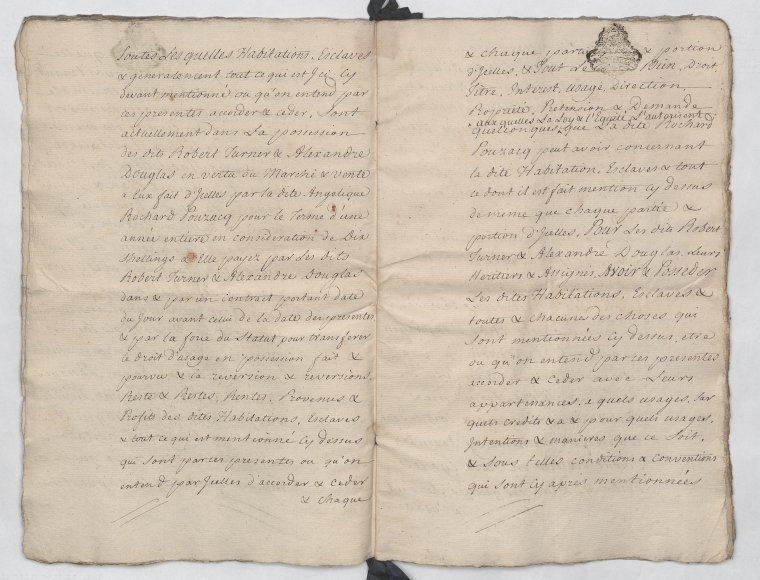 Toutes Les quelles Habitations, Esclaves
& generalement tout ce que est Icy Cy
devant mentionné ou qu'on entend par
ces presentes accorder & ceder, Sont
actuellement dans La possession
des dits Robert Turner & Alexandre
Douglas en vertu du Marché & Vente
a Eux fait d'Icelles par la dite Angelique
Rochard Pouzacq pour le Terme d'une
année entiere en consideration de Dix
Shellings a Elle payez par Les dits
Robert Turner & Alexandre Douglas
dans & par un Contract portant date
du Jour avant celui de la date des presentes
& par la force du Statut pour transferer
le droit d'usage en possession fait &
pourvu, & la reversion & reversions,
Reste & Restes, Rentes, Provenus &
Profits des dites Habitations, Esclaves
& tout ce qui est mentionné Cy dessus
qui sont par ces presentes ou qu'on
entend par Icelles d'accorder & Ceder
& chaque
& chaque partie & portion
d'Icelles, & Tout Le Bien, Droit,
Titre, Interest, Usage, Direction
Propriété, Pretension & Demande
aux quelles La Loy & l'Equité L'autorisent
quelconques, que La dite Rochard
Pouzacq peut avoir concernant
la dite Habitation, Esclaves & tout
ce dont il est fait mention Cy dessus
de meme que chaque partie &
portion d'Icelles, Pour Les dits Robert
Turner & Alexandre Douglas, Leurs
Heritiers & Assignés, Avoir & Posseder
Les dites Habitations, Esclaves &
toutes & chacunes des choses qui
sont mentionnées Cy dessus, etre
ou qu'on entend par ces presentes
accorder & Ceder avec Leurs
appartenances, a quels usages, Sur
quels credits & a & pour quels usages,
Intentions & manieres que ce Soit,
& Sous telles conditions & conventions
qui sont Cy apres mentionnées